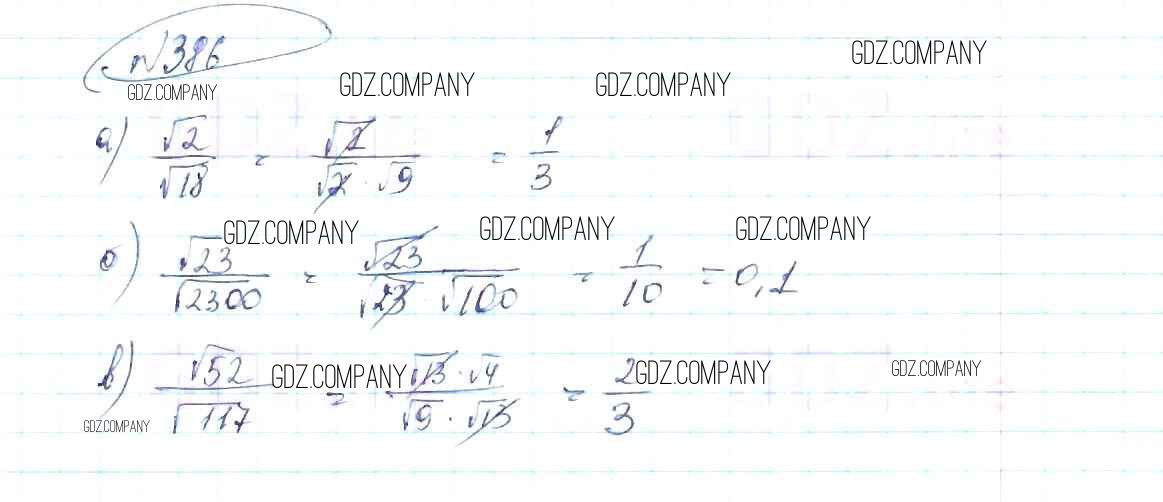 №386
GDZ.COMPANY
GDZ.COMPANY GDZ.COMPANY GDZ.COMPANY
а) √2/√18 = √2/(√2 · √9) = 1/3
GDZ.COMPANY GDZ.COMPANY GDZ.COMPANY
б) √23/√2300 = √23/(√23 · √100) = 1/10 = 0,1
GDZ.COMPANY GDZ.COMPANY GDZ.COMPANY
в) √52/√117 = (√13 · √4)/(√9 · √13) = 2/3
GDZ.COMPANY